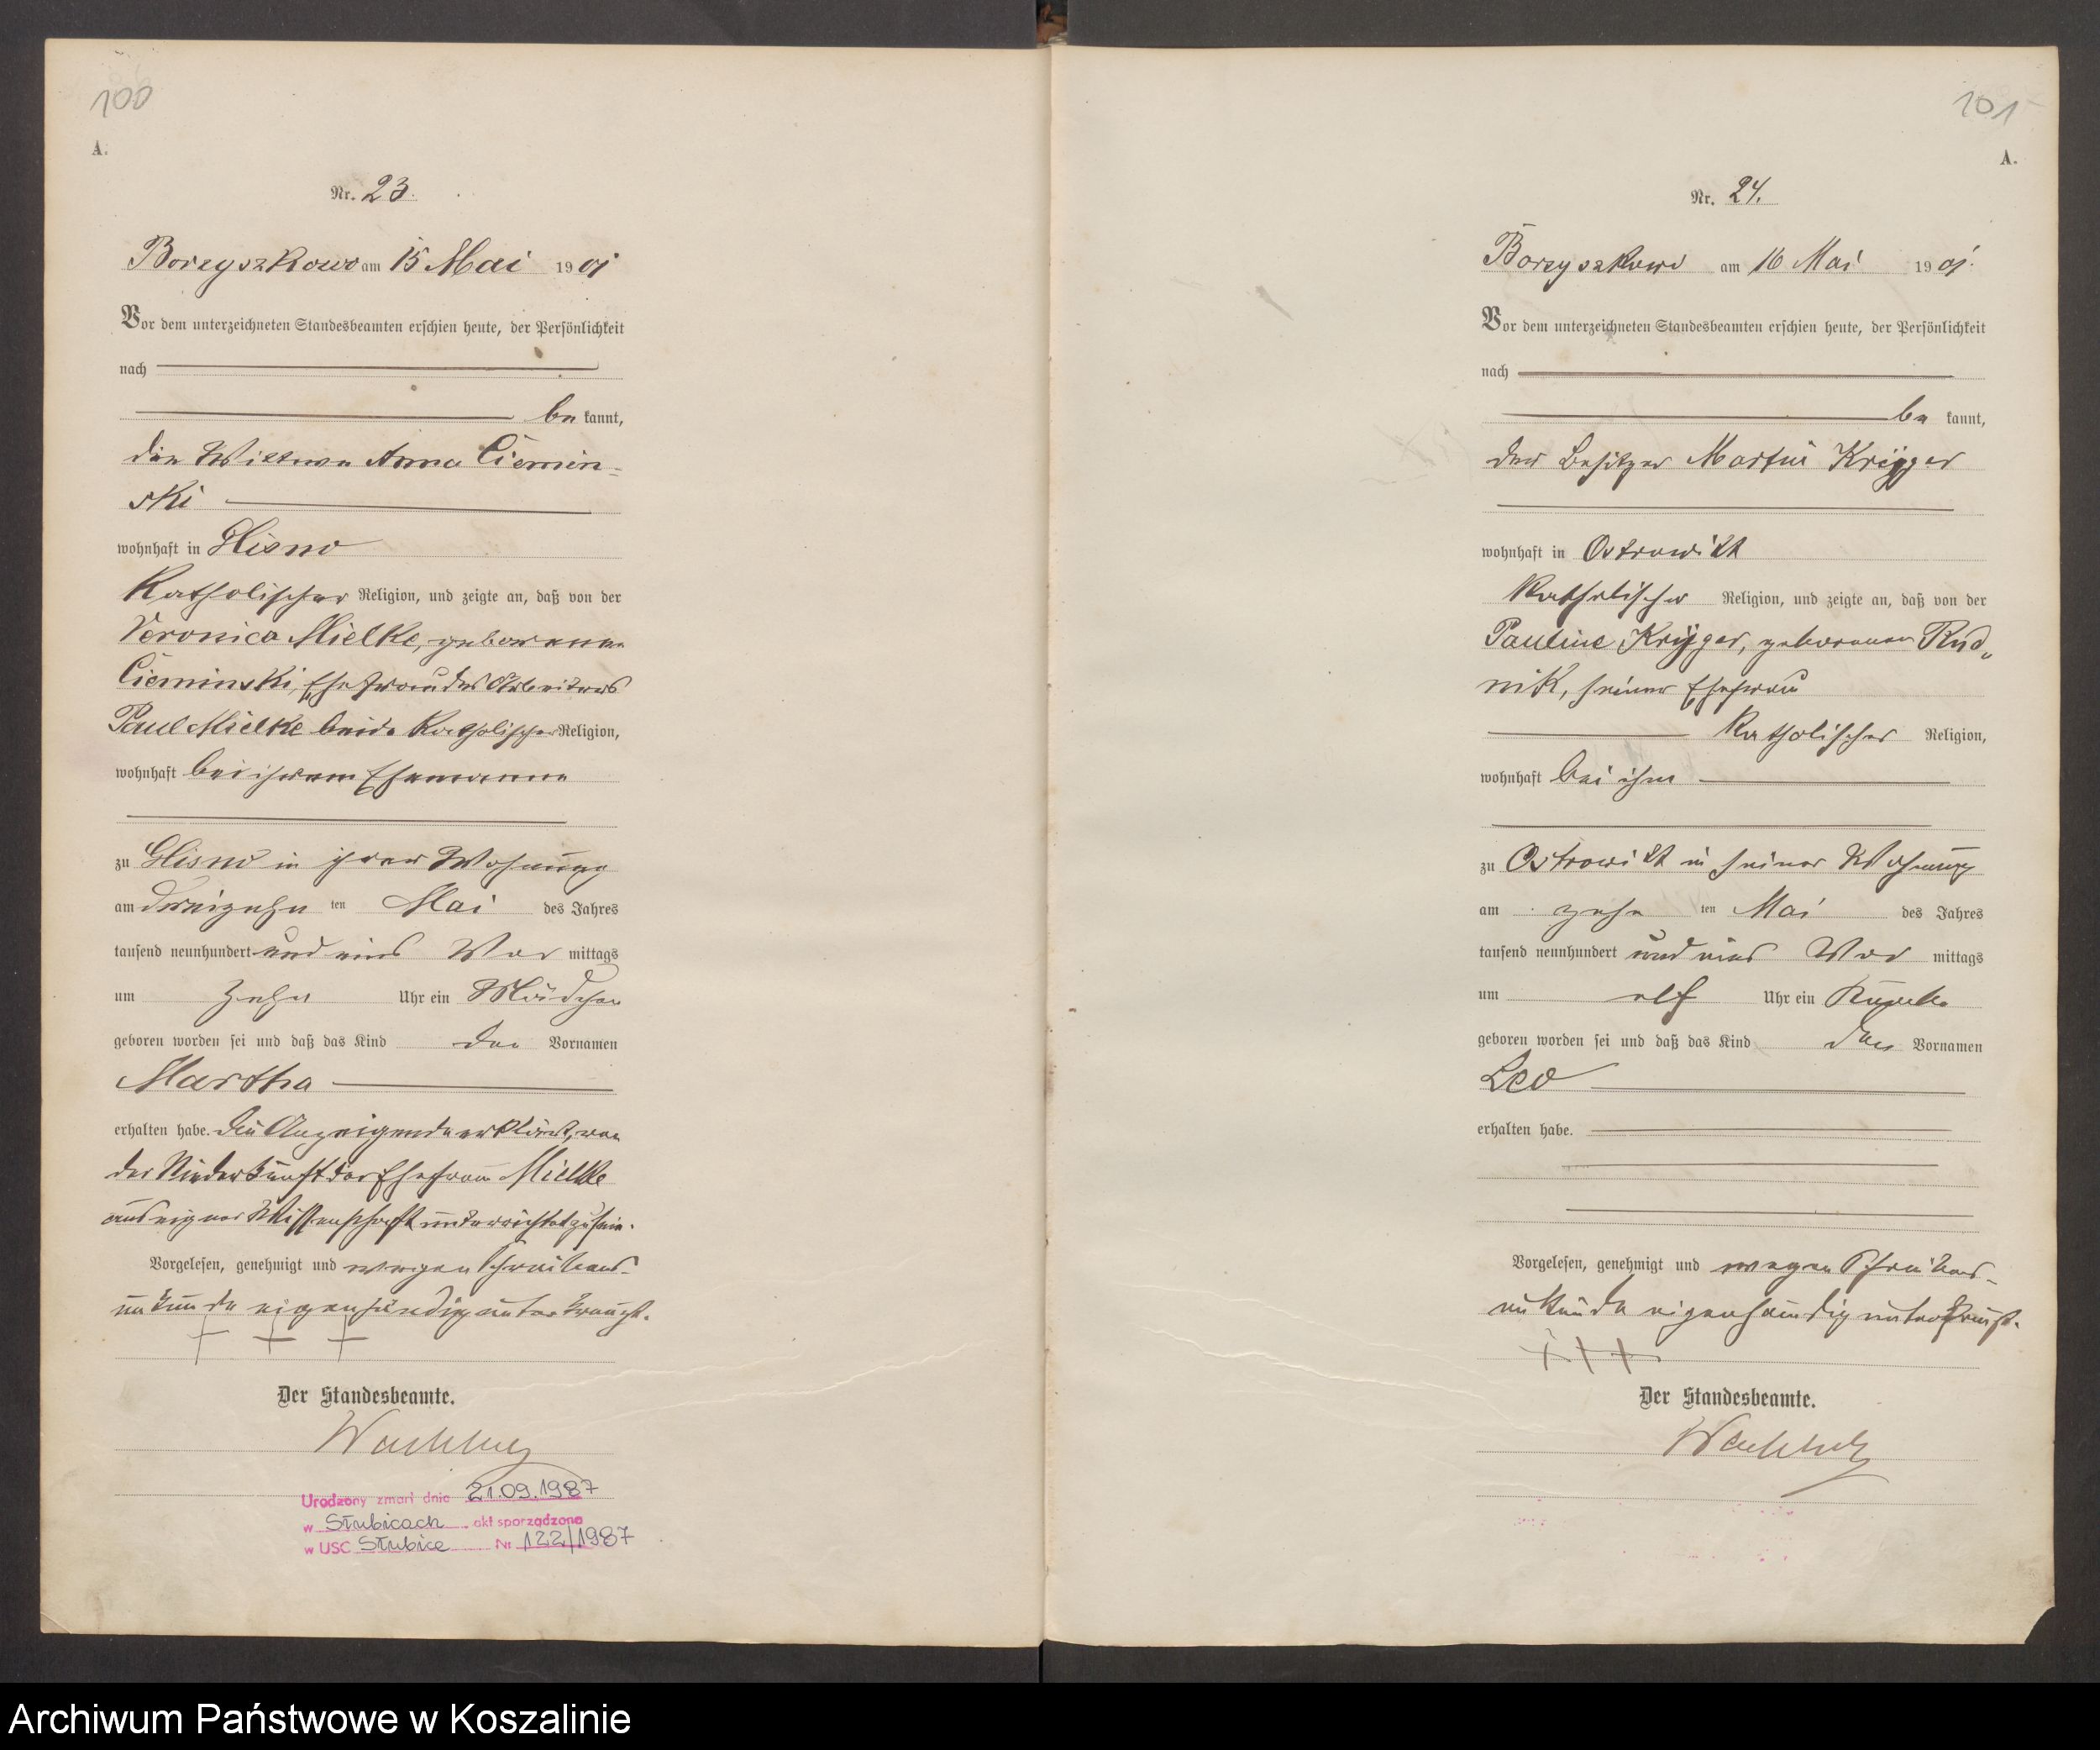 100
A.
Nr. 23.
Borzyszkowo am 15 Mai 1901
Vor dem unterzeichneten Standesbeamten erschien heute, der Persönlichkeit
nach
be kannt,
die Wittwe Anna Ciemin=
ski
wohnhaft in Glisno
Katholischer Religion, und zeigte an, daß von der
Veronica Mielke, geborenen
Cieminski, Ehefrau des Arbeiters
Paul Mielke beide Katholischer Religion,
wohnhaft bei ihrem Ehemanne
zu Glisno in ihrer Wohnung
am dreizehn ten Mai des Jahres
tausend neunhundert und eins Vor mittags
um zehn Uhr ein Mädchen
geboren worden sei und daß das Kind den Vornamen
Martha
erhalten habe. Die Anzeigende erklärt, von
der Niederkunft der Ehefrau Mielke
aus eigner Wissenschaft unterrichtet zu sein.
Vorgelesen, genehmigt und wegen Schreibens-
unkunde eigenhändig unterkreuzt.
+ + +
Der Standesbeamte.
Urodzony zmarł dnia 21.09.1987
w Słubicach akt sporządzono
w USC Słubice Nr 122/1987
101
A.
Nr. 24.
Borzyszkowo am 16 Mai 1901.
Vor dem unterzeichneten Standesbeamten erschien heute, der Persönlichkeit
nach
be kannt,
der Besitzer Martin Krÿger
wohnhaft in Ostrowitt
Katholischer Religion, und zeigte an, daß von der
Pauline Krÿger, geborenen Rud„
nik, seiner Ehefrau
Katholischer Religion,
wohnhaft bei ihm
zu Ostrowitt in seiner Wohnung
am zehn ten Mai des Jahres
tausend neunhundert und eins Vor mittags
um elf Uhr ein Knabe
geboren worden sei und daß das Kind den Vornamen
Leo
erhalten habe.
Vorgelesen, genehmigt und wegen Schreibens-
unkunde eigenhändig unterkreuzt.
+++
Der Standesbeamte.
Archiwum Państwowe w Koszalinie